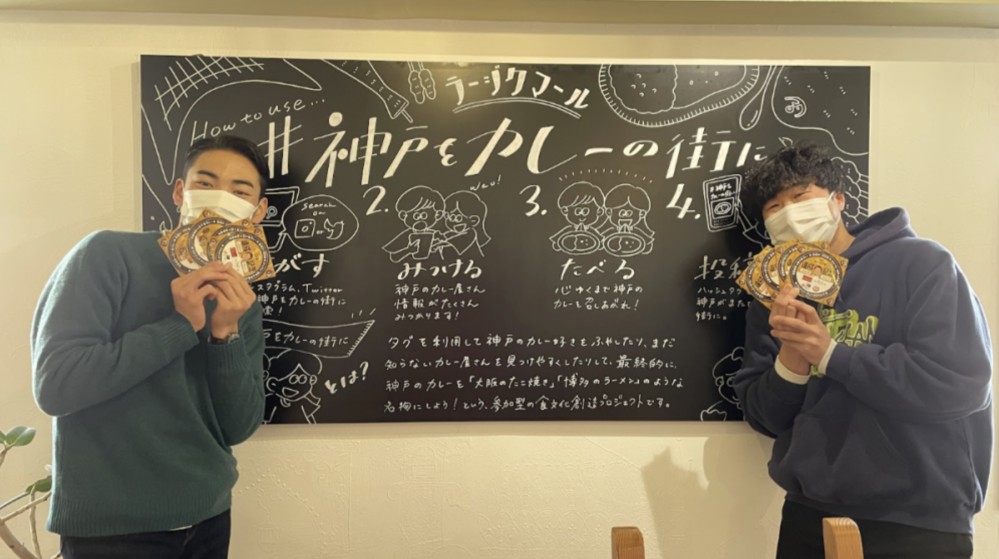 ラージクマール
How to use...
#神戸をカレーの街に
search
on
2.
Wao!
3.
4.
#神戸を
カレーの街に
がす
みつける
たべる
スタグラム、Twitter
神戸をカレーの街に
神戸のカレー屋さん
情報がたくさん
みつかります!
心ゆくまで神戸の
カレーを召しあがれ!
ハッシュタ
神戸がまた
街に。
をカレーの街に
とは?
タグを利用して神戸のカレー好きをふやしたり、まだ
知らないカレー屋さんを見つけやすくしたりして、最終的に、
神戸のカレーを「大阪のたこ焼き」「博多のラーメン」のような
名物にしよう!という、参加型の食文化創造プロジェクトです。